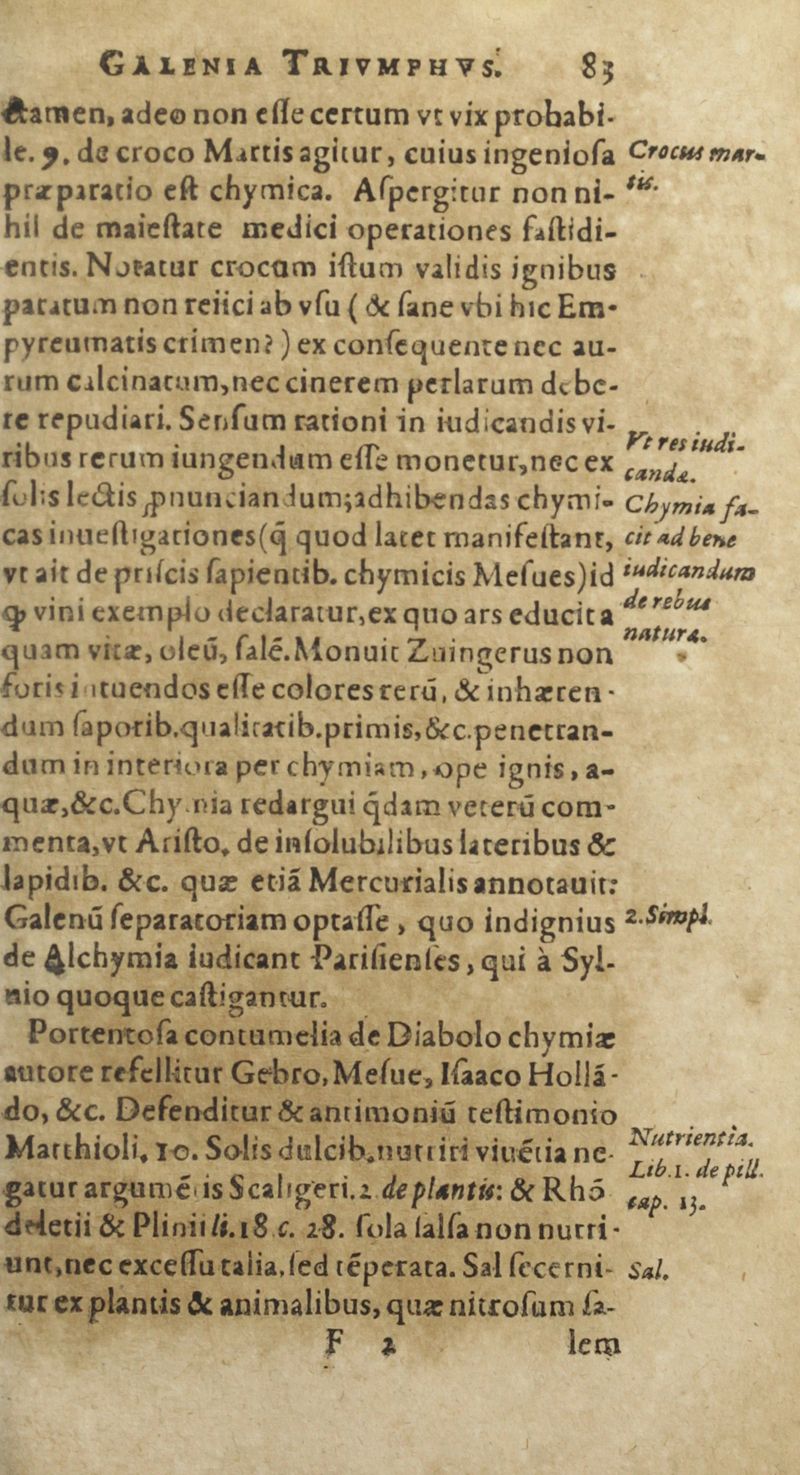 GALENIA TRIVMPHVS. 83
ctamen, adeo non esse certum vt vix probabi-
le. 9. de croco Martis agitur, cuius ingeniosa
Crocus mar-
præparatio est chymica. Aspergitur non ni-
tis.
hil de maiestate medici operationes fastidi-
entis. Notatur crocum istum validis ignibus
paratum non reiici ab vsu ( & sane vbi hic Em-
pyreumatis crimen? ) ex consequente nec au-
rum calcinatum, nec cinerem perlarum debe-
re repudiari. Sensum rationi in iudicandis vi-
ribus rerum iungendum esse monetur, nec ex
Vt res iudi-
candæ.
solis lectis ꝓnunciandum; adhibendas chymi-
Chymia fa-
cas inuestigationes (q̄ quod latet manifestant,
cit ad bene
vt ait de priscis sapientib. chymicis Mesues) id
iudicandum
ꝙ vini exemplo declaratur, ex quo ars educit a
de rebus
quam vitæ, oleū, salē. Monuit Zuingerus non
natura.
foris intuendos esse colores rerū, & inhæren-
dum saporib. qualitatib. primis, &c. penetran-
dum in interiora per chymiam, ope ignis, a-
quæ, &c. Chymia redargui q̄dam veterū com-
menta, vt Aristo. de insolubilibus lateribus &
lapidib. &c. quæ etiā Mercurialis annotauit:
Galenū separatoriam optasse, quo indignius
2. Simpl.
de Alchymia iudicant Parisienses, qui à Syl-
uio quoque castigantur.
Portentosa contumelia de Diabolo chymiæ
autore refellitur Gebro, Mesue, Isaaco Hollā-
do, &c. Defenditur & antimoniū testimonio
Matthioli. 10. Solis dulcib. nutriri viuētia ne-
Nutrientia.
gatur argumētis Scaligeri. 2. de plantis: & Rhō
Lib. 1. de pill.
cap. 13.
deletii & Plinii li. 18 c. 28. sola salsa non nutri-
unt, nec excessu talia, sed tēperata. Sal secerni-
Sal.
tur ex plantis & animalibus, quæ nitrosum sa-
F 2 lem